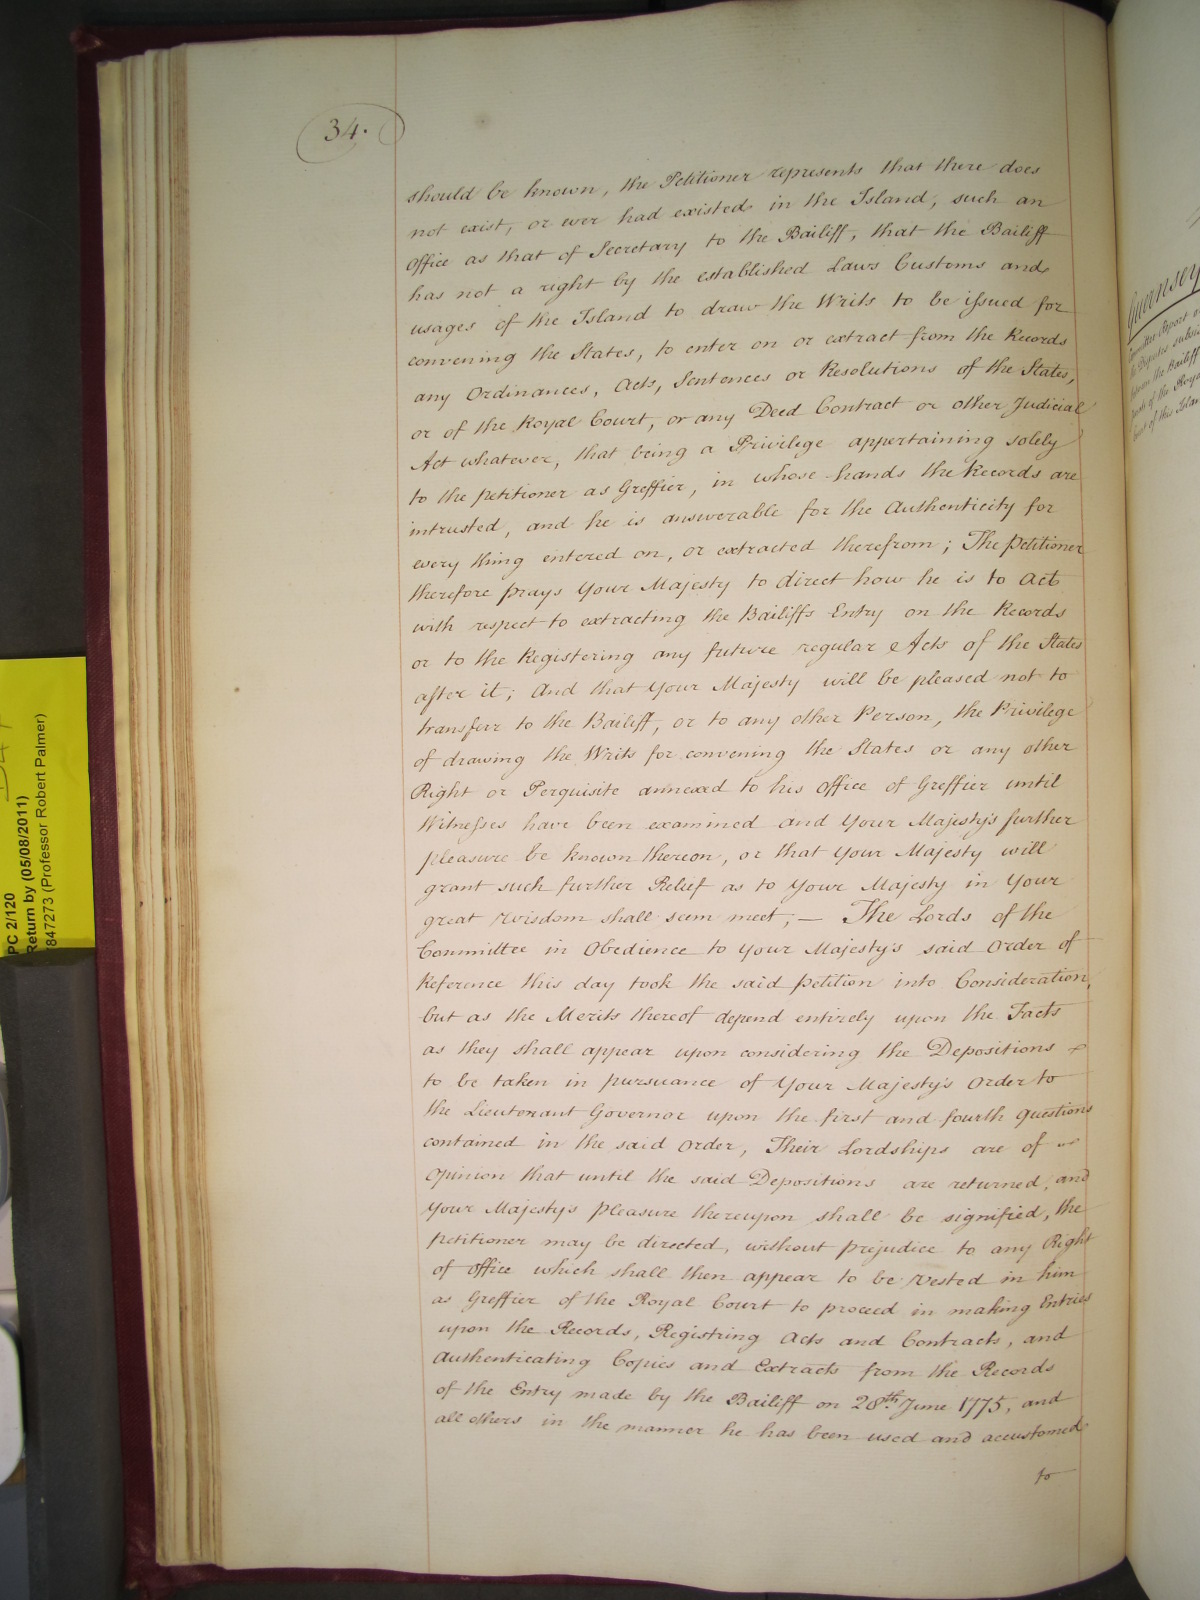 34.
should be known, the Petitioner represents that there does
not exist, or ever had existed in the Island, such an
Office as that of Secretary to the Bailiff, that the Bailiff
has not a right by the established Laws Customs and
usages of the Island to draw the Writs to be issued for
convening the States, to enter on or extract from the Records
any Ordinances, Acts, Sentences or Resolutions of the States,
or of the Royal Court, or any Deed Contract or other Judicial
Act whatever, that being a Privilege appertaining solely
to the petitioner as Greffier, in whose hands the Records are
intrusted, and he is answerable for the Authenticity for
every thing entered on, or extracted therefrom; The petitioner
therefore prays Your Majesty to direct how he is to act
with respect to extracting the Bailiffs Entry on the Records
or to the Registering any future regular Acts of the States
after it; And that Your Majesty will be pleased not to
transferr to the Bailiff, or to any other Person, the Privilege
of drawing the Writs for convening the States or any other
Right or Perquisite annexed to his Office of Greffier until
Witnesses have been examined and Your Majesty's further
pleasure be known thereon, or that Your Majesty will
grant such further Relief as to Your Majesty in Your
great Wisdom shall seem meet; — The Lords of the
Committee in Obedience to Your Majesty's said Order of
Reference this day took the said petition into Consideration,
but as the Merits thereof depend entirely upon the Facts
as they shall appear upon considering the Depositions
to be taken in pursuance of Your Majesty's Order to
the Lieutenant Governor upon the first and fourth Questions
contained in the said Order, Their Lordships are of
Opinion that until the said Depositions are returned, and
Your Majesty's Pleasure thereupon shall be signified, the
petitioner may be directed, without prejudice to any Right
of Office which shall then appear to be vested in him
as Greffier of the Royal Court to proceed in making Entries
upon the Records, Registring Acts and Contracts, and
Authenticating Copies and Extracts from the Records
of the Entry made by the Bailiff on 28th June 1775, and
all others in the manner he has been used and accustomed
to
Guernsey
PC 2/120
Return by (05/08/2011)
847273 (Professor Robert Palmer)